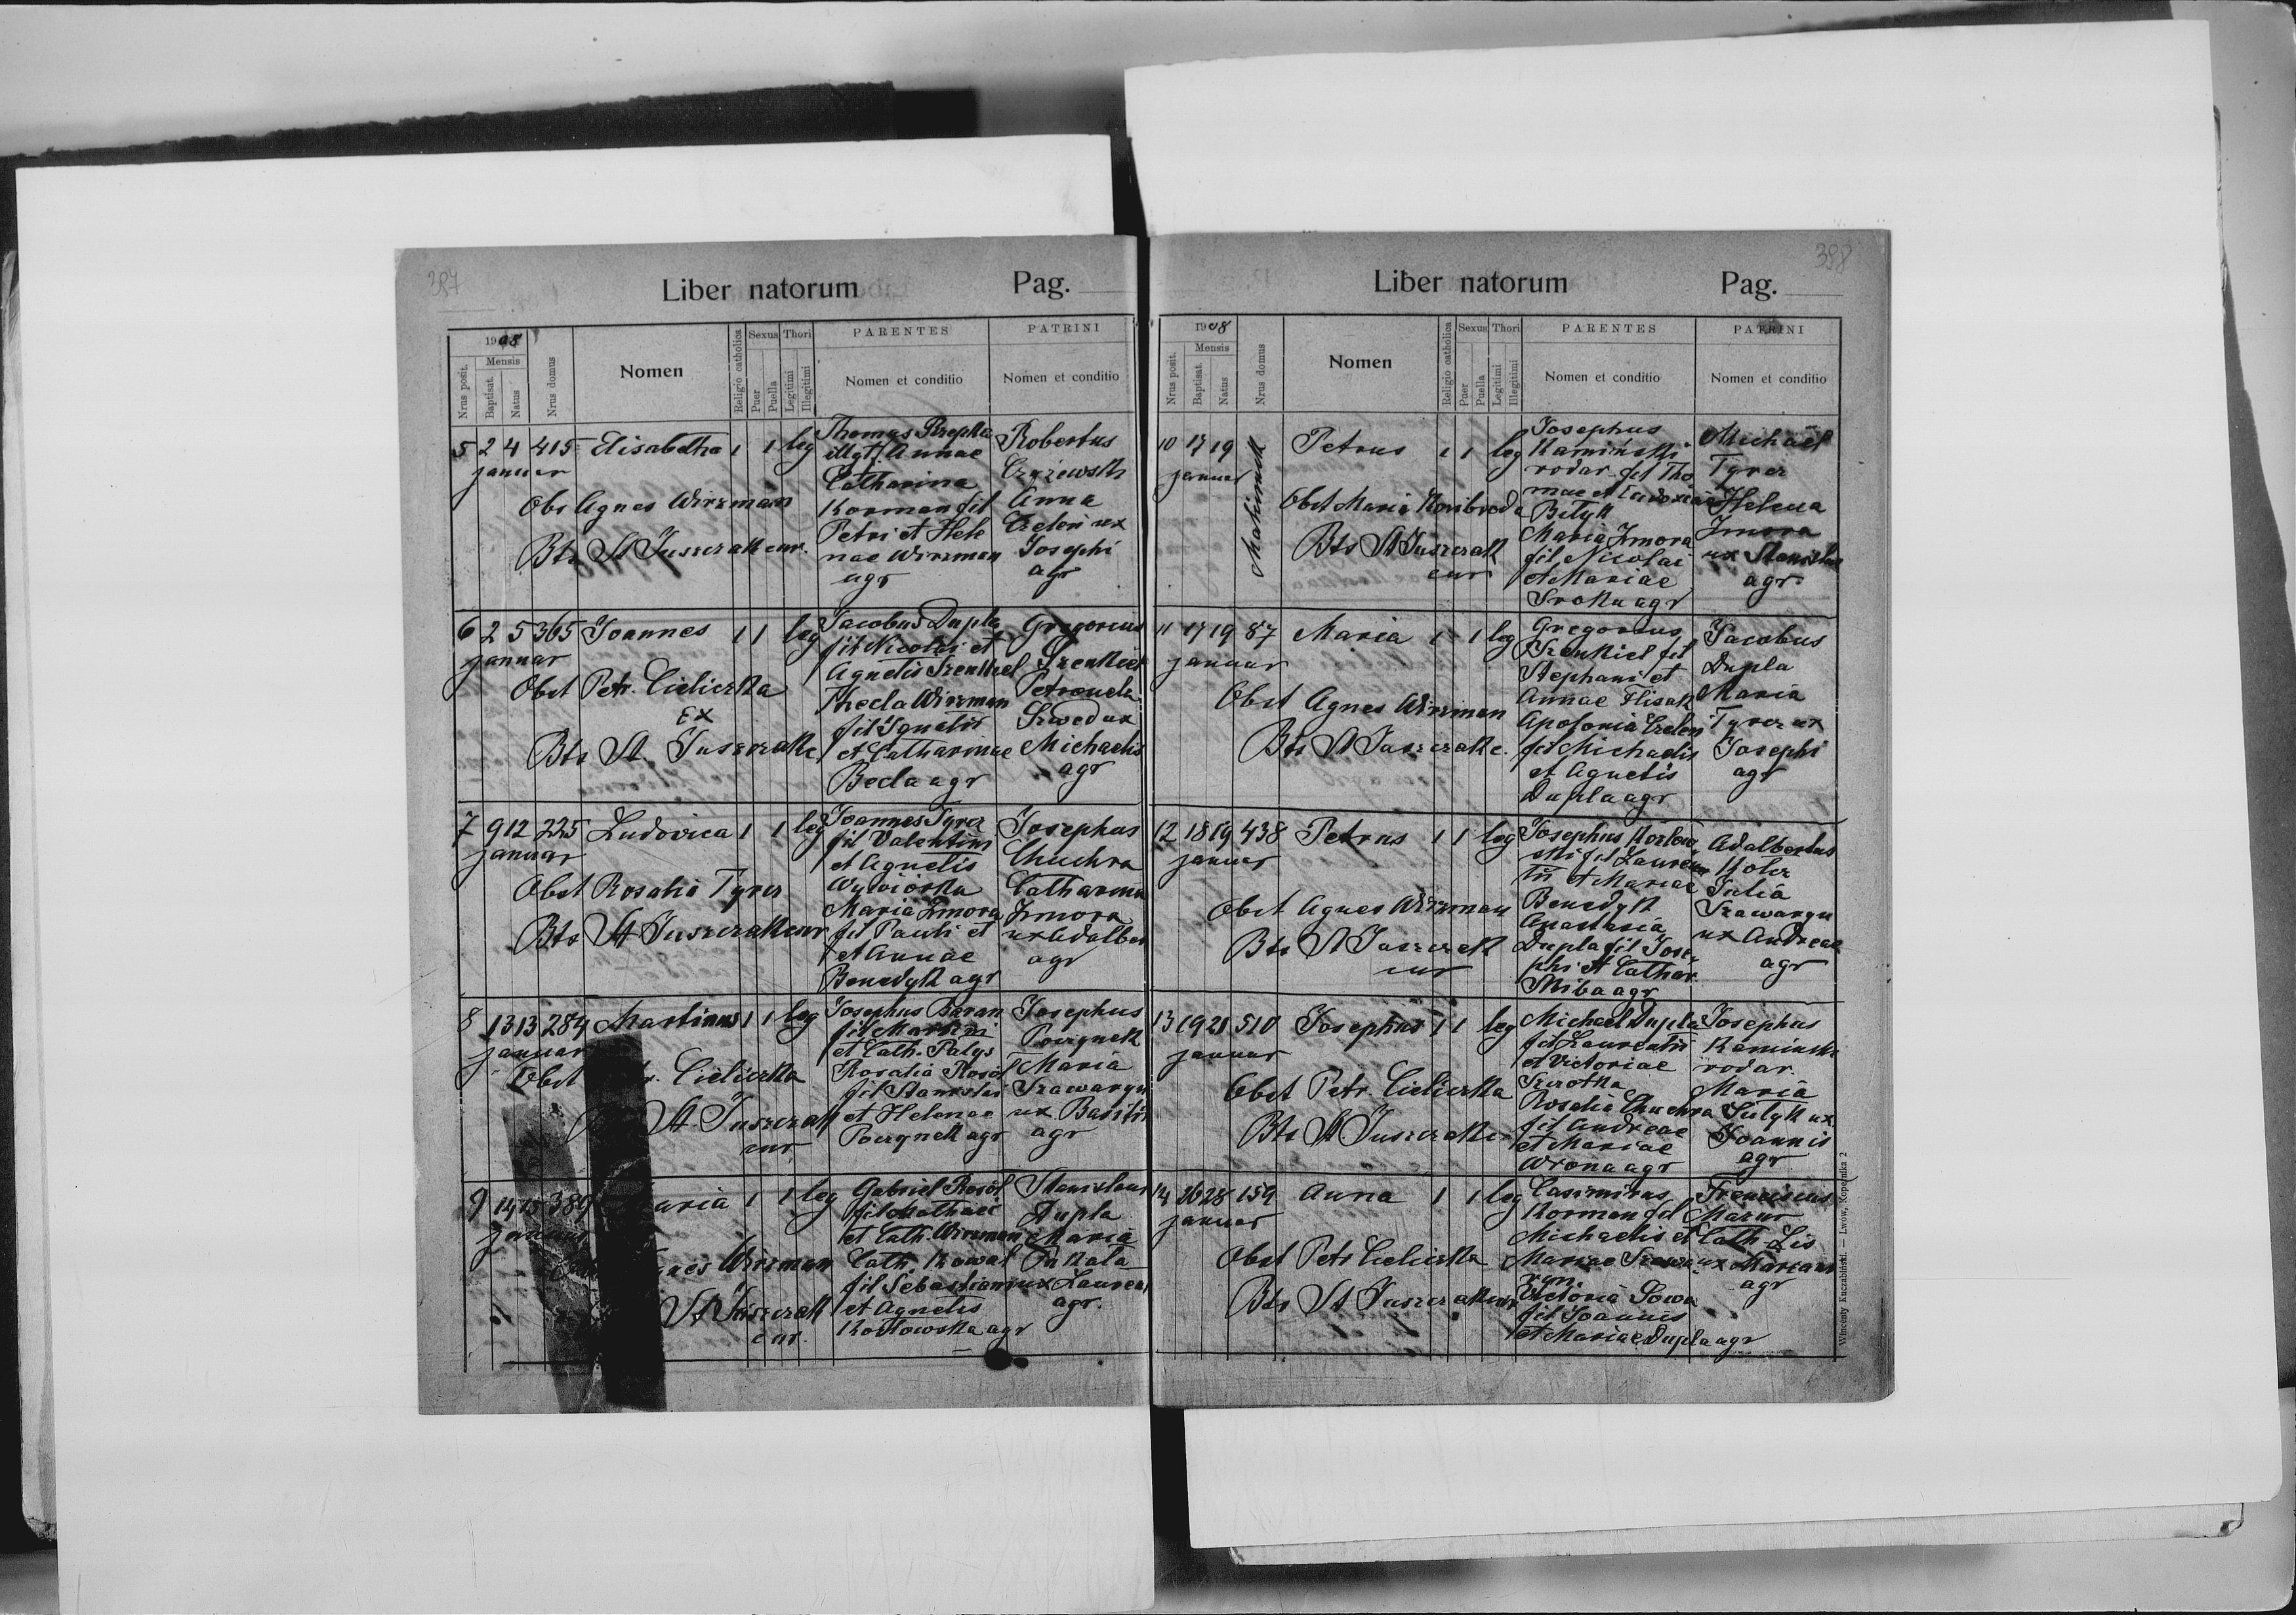 387
Liber natorum
Pag.
1908
Mensis
Nrus posit.
Baptisat.
Natus
Nrus domus
Nomen
Religio catholica
Sexus
Puer
Puella
Thori
Legitimi
Illegitimi
PARENTES
Nomen et conditio
PATRINI
Nomen et conditio
5 2 4 415 Elisabetha 1 1 leg
januar
Obs Agnes Wirzman
Bts St Juszczak cur.
Thomas
illgt Annae
Catharina
Korman fil
Petri et Hele
nae Wirzman
agr
Robertus
Anna
Czelen ux
Josephi
agr
6 2 5 365 Joannes 1 1 leg
januar
Obst Petr. Cieliczka
Ex
Bts St. Juszczak c
Jacobus Dupla
fil Nicolai et
Agnetis Szenkiel
Thecla Wirzman
fil Ignatii
et Catharinae
Becla agr
Gregorius
Szenkiel
Petronela
Szwed ux
Michaelis
agr
7 9 12 225 Ludovica 1 1 leg
januar
Obst Rosalia Tyrcz
Bts St Juszczak cur
Joannes Tyrcz
fil Valentini
et Agnetis
Maria Zmora
fil Pauli et
et Annae
Benedyk agr
Josephus
Chuchra
Catharina
Zmora
ux Adalber
agr
8 13 13 284 Martinus 1 1 leg
januar
Obst Cieliczka
St. Juszczak
cur
Josephus Baran
fil Martini
et Cath. Palys
Rosalia Rosół
fil Stanislai
et Helenae
Pouzynek agr
Josephus
Pouzynek
Maria
Szawaryn
ux Basilii
agr
9 14 15 389 aria 1 1 leg
januar
gnes Wirzman
St Juszczak
cur.
Gabriel Rosół
fil Mathaei
et Cath. Wirzman
Cath. Kowal
fil Sebastiani
et Agnetis
Kozłowska agr
Stanislaus
Dupla
Maria
Pukala
ux Lauren
agr.
388
Liber natorum
Pag.
1908
Mensis
Nrus posit.
Baptisat.
Natus
Nrus domus
Nomen
Religio catholica
Sexus
Puer
Puella
Thori
Legitimi
Illegitimi
PARENTES
Nomen et conditio
PATRINI
Nomen et conditio
10 17 19 Petrus 1 1 leg
januar
Obst Maria
Bts St Juszczak
cur
Josephus
Kamiński
rodar fil Tho
mae et Eudoxiae
Bityk
Maria Zmora
fil Nicolai
et Mariae
Sroka agr
Michael
Tyrcz
Helena
Zmora
ux Stanislai
agr
11 17 19 87 Maria 1 1 leg
januar
Obst Agnes Wirzman
Bts St Juszczak c.
Gregorius
Szenkiel fil
Stephani et
Annae Flisak
Apolonia Czelen
fil Michaelis
et Agnetis
Dupla agr
Jacobus
Dupla
Maria
Tyrcz ux
Josephi
agr
12 18 19 438 Petrus 1 1 leg
januar
Obst Agnes Wirzman
Bts St Juszczak
cur
Josephus Kozłow
ski fil Lauren
tii et Mariae
Benedyk
Anastasia
Dupla fil Jose
phi et Cathar.
Skiba agr
Adalbertus
Julia
Szawaryn
ux Andreae
agr
13 19 21 510 Josephus 1 1 leg
januar
Obst Petr Cieliczka
Bts St Juszczak c
Michael Dupla
fil Laurentii
et Victoriae
Szrotka
Rosalia Chuchra
fil Andreae
et Mariae
Wrona agr
Josephus
Kaminski
rodar.
Maria
ux
Joannis
agr
14 26 28 159 Anna 1 1 leg
januar
Obst Petr Cieliczka
Bts St Juszczak cur
Casimirus
Korman fil
Michaelis et
Mariae Szawa
ryn.
Victoria Sowa
fil Joannis
et Mariae Dupla agr
Franciscus
Mazur
Cath Lis
ux Mariani
agr
Wincenty Kuczabiński. — Lwów, Kopernika 2